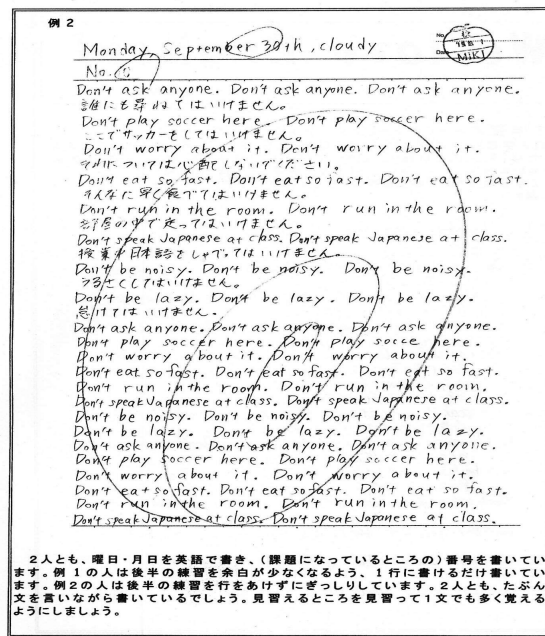 例2
Monday, September 30th, cloudy
No.
Date
MIKI
No.
Don't ask anyone. Don't ask anyone. Don't ask anyone.
誰にも尋ねてはいけません。
Don't play soccer here. Don't play soccer here.
ここでサッカーをしてはいけません。
Don't worry about it. Don't worry about it.
それについては心配しないでください。
Don't eat so fast. Don't eat so fast. Don't eat so fast.
そんなに早く食べてはいけません。
Don't run in the room. Don't run in the room.
部屋の中で走ってはいけません。
Don't speak Japanese at class. Don't speak Japanese at class.
授業中日本語をしゃべってはいけません
Don't be noisy. Don't be noisy. Don't be noisy.
うるさくしてはいけません。
Don't be lazy. Don't be lazy. Don't be lazy.
怠けてはいけません。
Don't ask anyone. Don't ask anyone. Don't ask anyone.
Don't play soccer here. Don't play socce here.
Don't worry about it. Don't worry about it.
Don't eat so fast. Don't eat so fast. Don't eat so fast.
Don't run in the room. Don't run in the room.
Don't speak Japanese at class. Don't speak Japanese at class.
Don't be noisy. Don't be noisy. Don't be noisy.
Don't be lazy. Don't be lazy. Don't be lazy.
Don't ask anyone. Don't ask anyone. Don't ask anyone.
Don't play soccer here. Don't play soccer here.
Don't worry about it. Don't worry about it.
Don't eat so fast. Don't eat so fast. Don't eat so fast.
Don't run in the room. Don't run in the room.
Don't speak Japanese at class. Don't speak Japanese at class.
2人とも、曜日・月日を英語で書き、(課題になっているところの)番号を書いてい
ます。例1の人は後半の練習を余白が少なくなるよう、1行に書けるだけ書いてい
ます。例2の人は後半の練習を行をあけずにぎっしりしています。2人とも、たぶん
文を言いながら書いているでしょう。見習えるところを見習って1文でも多く覚える
ようにしましょう。